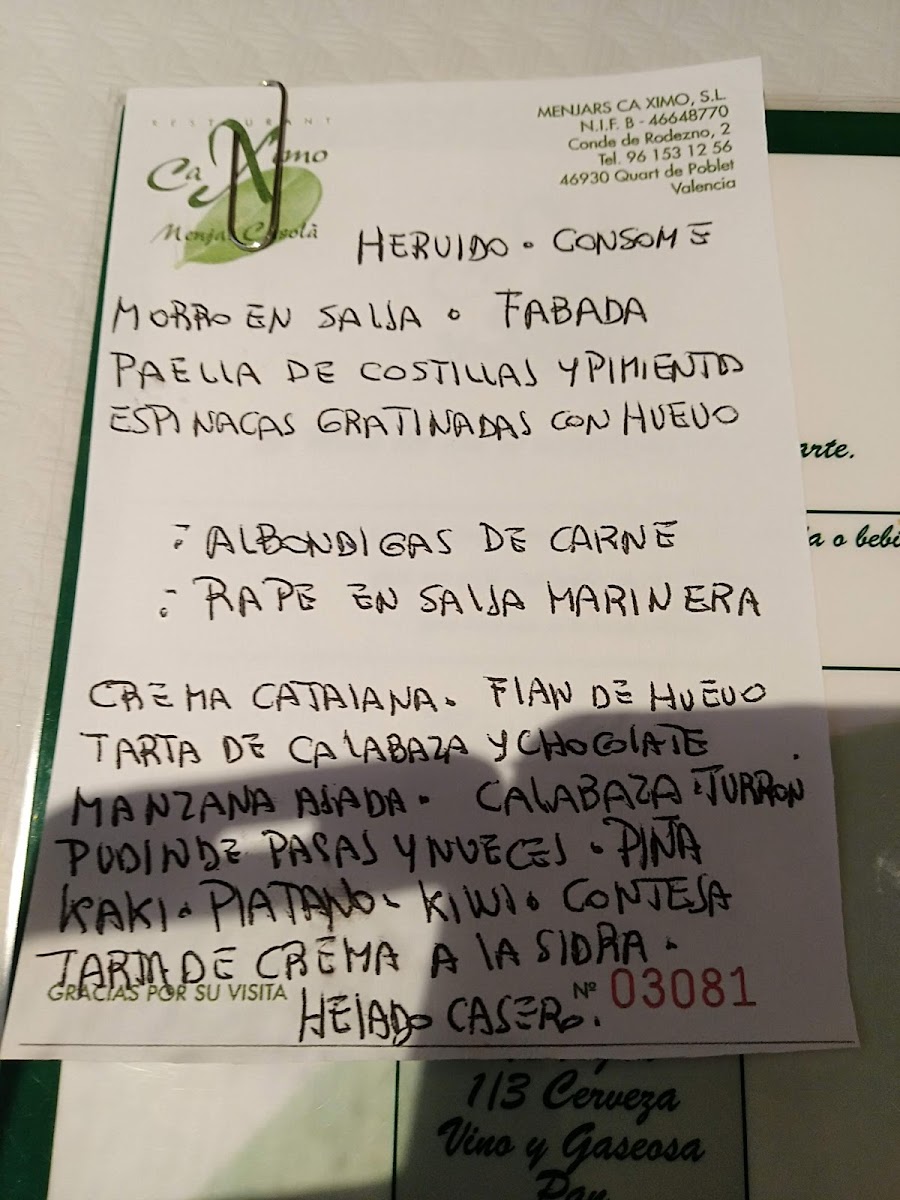 RESTAURANT
Ca Ximo
Menjar Casolà
MENJARS CA XIMO, S.L.
N.I.F. B - 46648770
Conde de Rodezno, 2
Tel. 96 153 12 56
46930 Quart de Poblet
Valencia
HERVIDO • CONSOMÉ
MORRO EN SALSA • FABADA
PAELLA DE COSTILLAS Y PIMIENTOS
ESPINACAS GRATINADAS CON HUEVO
arte.
a o bebi
ALBONDIGAS DE CARNE
RAPE EN SALSA MARINERA
CREMA CATALANA. FLAN DE HUEVO
TARTA DE CALABAZA Y CHOCOLATE
MANZANA ASADA. CALABAZA. TURRON
PUDIN DE PASAS Y NUECES. PIÑA
KAKI. PLATANO. KIWI. CONTESA
TARTA DE CREMA A LA SIDRA.
GRACIAS POR SU VISITA
Nº 03081
HELADO CASERO.
1/3 Cerveza
Vino y Gaseosa
Pan